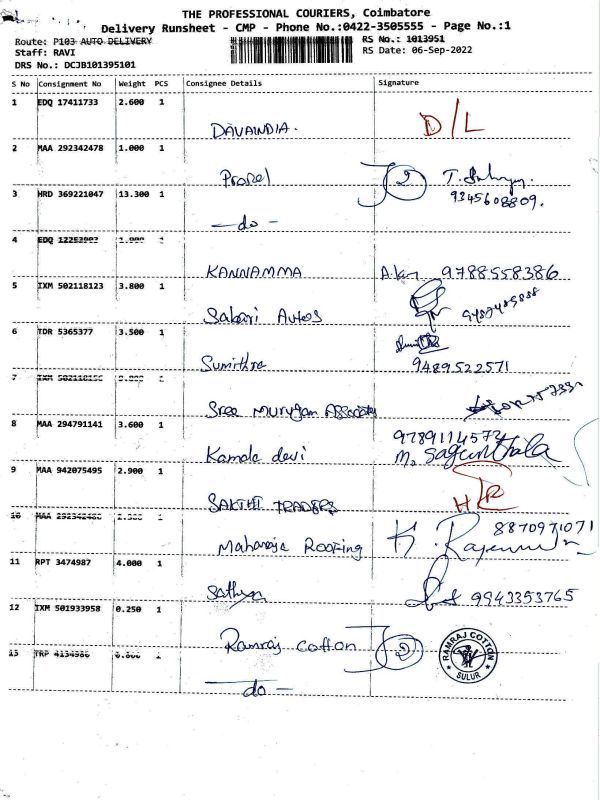 THE PROFESSIONAL COURIERS, Coimbatore
Delivery Runsheet - CMP - Phone No.:0422-3505555 - Page No.:1
Route: P103 AUTO DELIVERY
RS No.: 1013951
Staff: RAVI
RS Date: 06-Sep-2022
DRS No.: DCJB101395101
S No Consignment No Weight PCS Consignee Details Signature
1 EDQ 17411733 2.600 1
DAVAINDIA. D/L
2 MAA 292342478 1.000 1
Prozel 2
9345608809.
3 HRD 369221047 13.300 1
-do-
4 EDQ 1
KANNAMMA 9788558386
5 IXM 502118123 3.800 1
Sabari Autos
6 TDR 5365377 3.500 1
Sumithra 9489522571
7 IXM 1
Sree Murugan Associates
8 MAA 294791141 3.600 1
9789114572
Kamala devi M. Sagunthala
9 MAA 942075495 2.900 1
SAKTHI TRADERS
10 MAA 1
8870971071
Maharaja Roofing K.
11 RPT 3474987 4.000 1
Sathya 9943353765
12 IXM 501933958 0.250 1
Ramraj cotton 2
RAMRAJ COTTON
SULUR
13 TRP 4134986 1
-do-